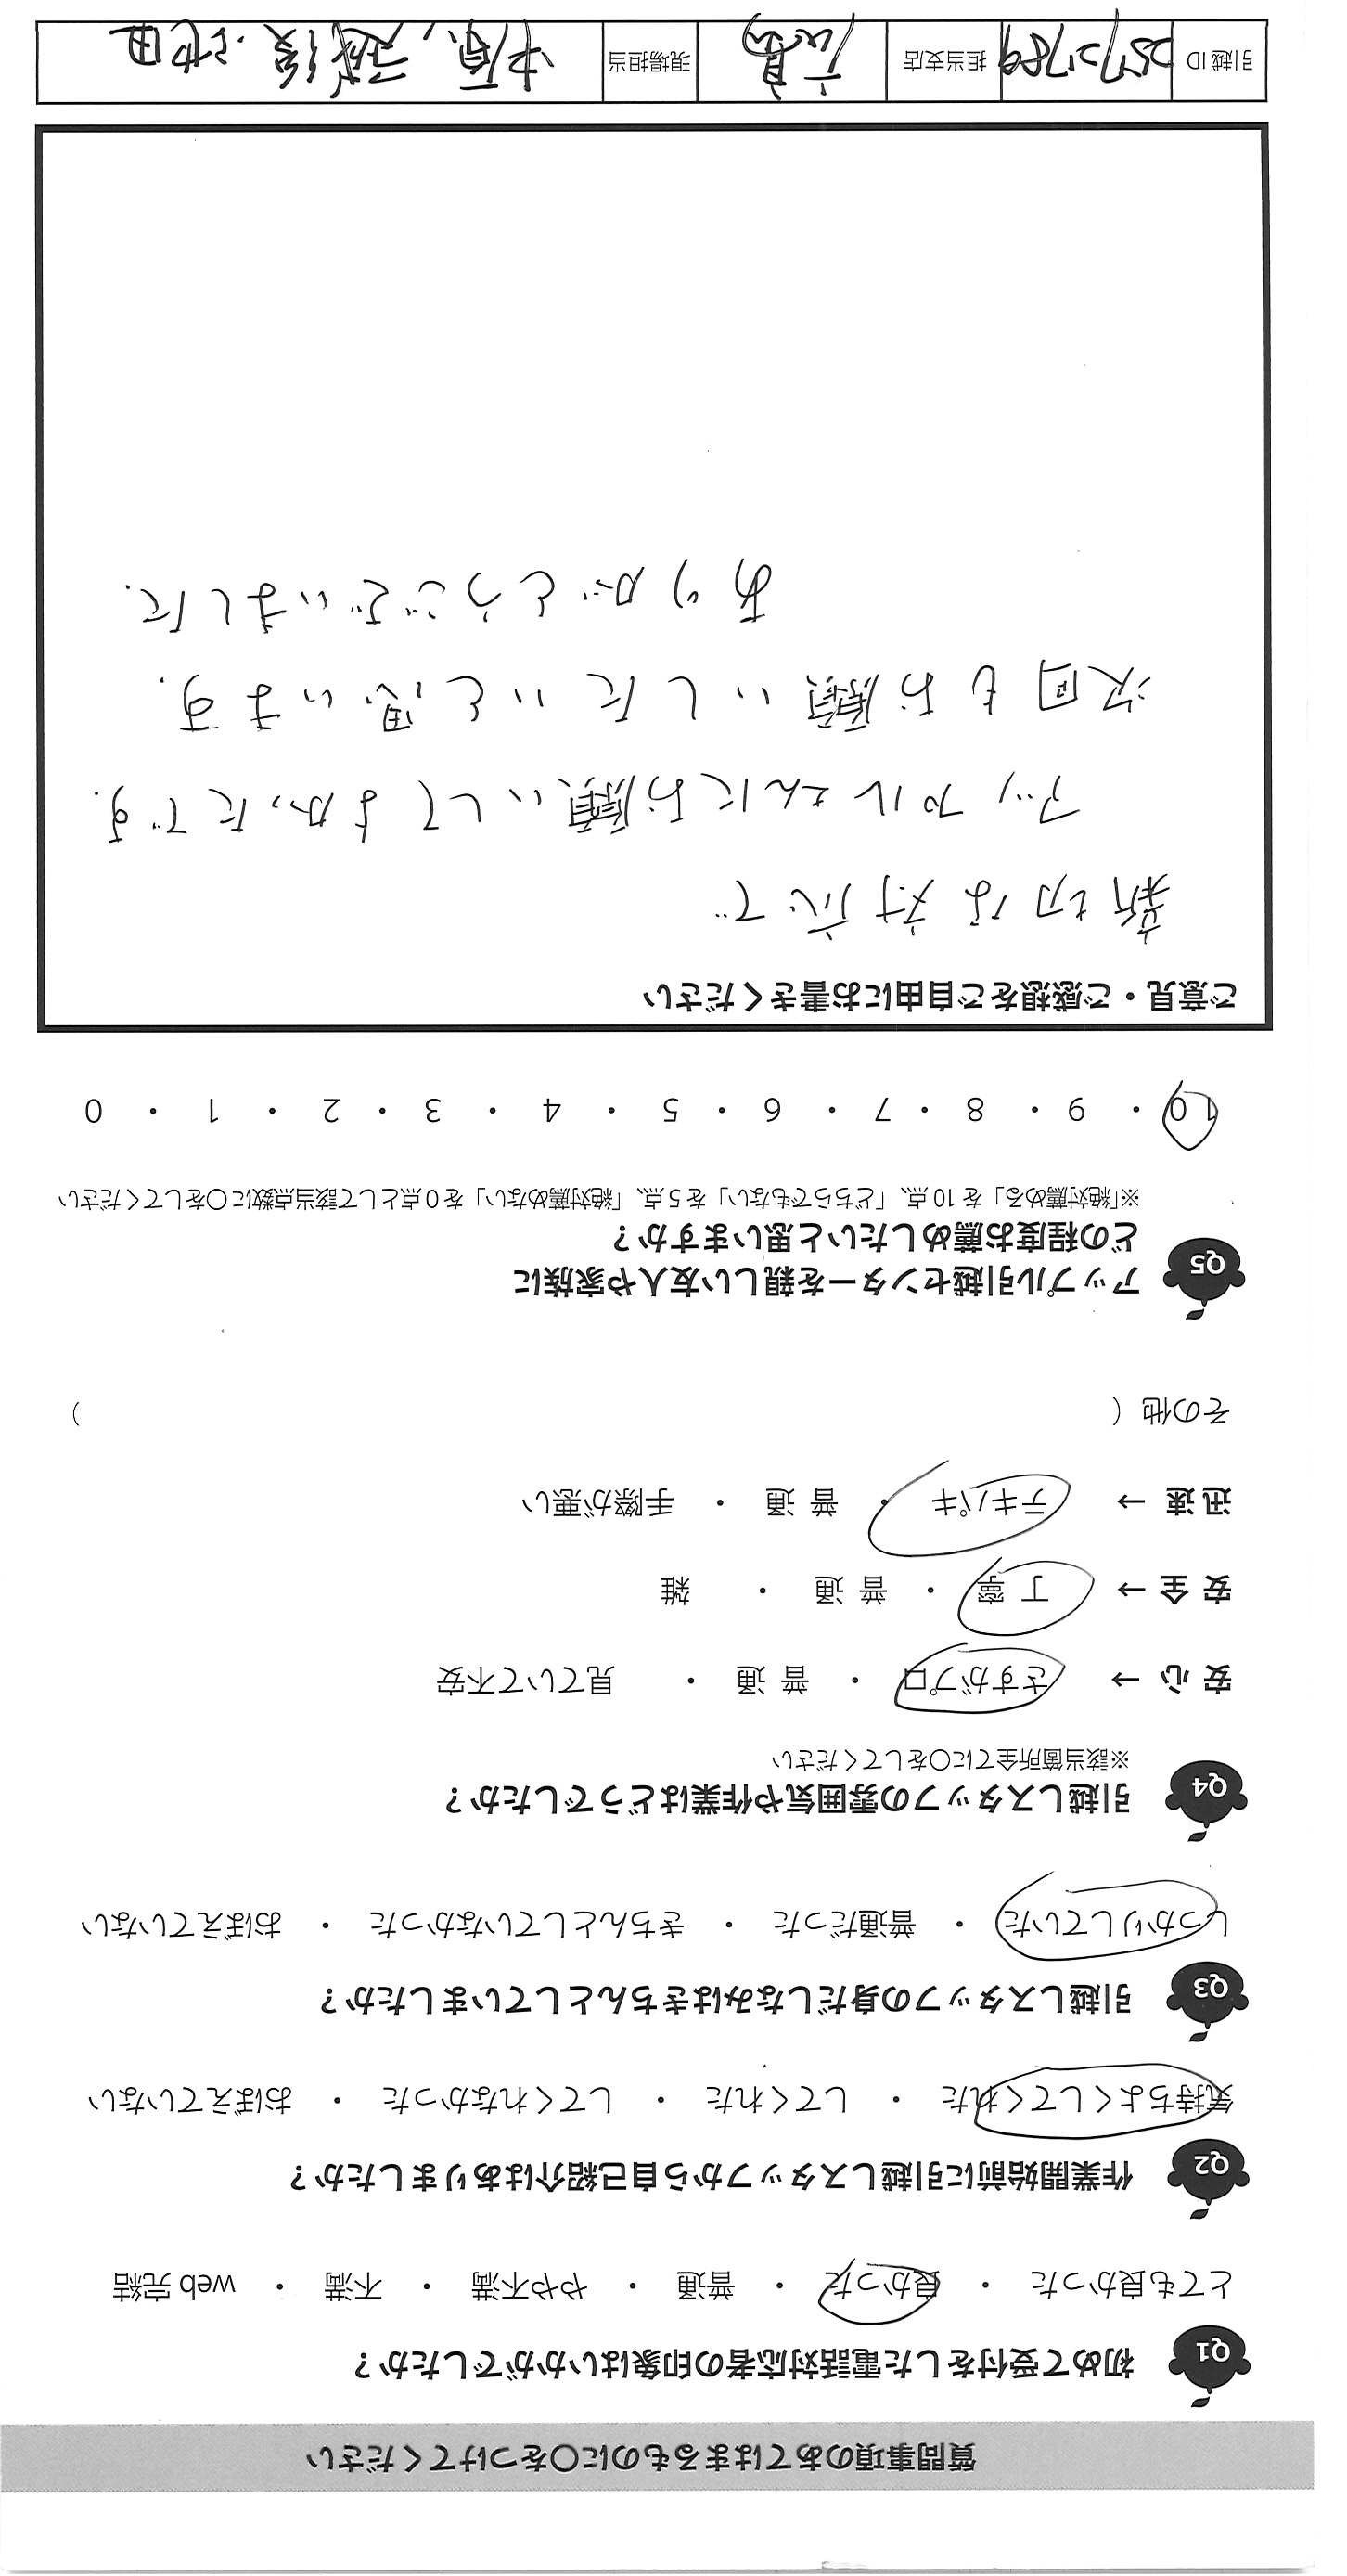 質問事項のあてはまるものに〇をつけてください
Q1 初めて受付をした電話対応者の印象はいかがでしたか？
とても良かった ・ 良かった ・ 普通 ・ やや不満 ・ 不満 ・ web 完結
Q2 作業開始前に引越しスタッフから自己紹介はありましたか？
気持ちよくしてくれた ・ してくれた ・ してくれなかった ・ おぼえていない
Q3 引越しスタッフの身だしなみはきちんとしていましたか？
しっかりしていた ・ 普通だった ・ きちんとしていなかった ・ おぼえていない
Q4 引越しスタッフの雰囲気や作業はどうでしたか？
※該当箇所全てに〇をしてください
安 心 → さすがプロ ・ 普 通 ・ 見ていて不安
安 全 → 丁 寧 ・ 普 通 ・ 雑
迅 速 → テキパキ ・ 普 通 ・ 手際が悪い
その他（ ）
Q5 アップル引越センターを親しい友人や家族に
どの程度お薦めしたいと思いますか？
※「絶対薦める」を 10 点、「どちらでもない」を 5 点、「絶対薦めない」を 0 点として該当点数に〇をしてください
10 ・ 9 ・ 8 ・ 7 ・ 6 ・ 5 ・ 4 ・ 3 ・ 2 ・ 1 ・ 0
ご意見・ご感想をご自由にお書きください
親切な対応で
アップルさんにお願いしてよかったです.
次回もお願いしたいと思います.
ありがとうございました.
引越 ID 担当支店 広島 現場担当 中原、 池田